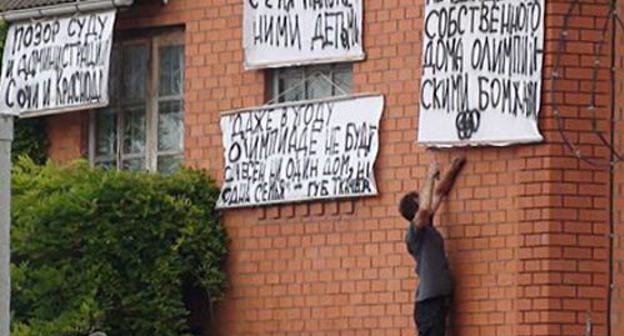 ПОЗОР СУДУ
И АДМИНИСТРАЦИИ
СОЧИ И КРАСНОД
НИМИ ДЕТЬМИ
СОБСТВЕННОГО
ДОМА ОЛИМПИЙ-
СКИМИ БОМЖАМИ
ДАЖЕ В УГОДУ
ОЛИМПИАДЕ НЕ БУДЕТ
СНЕСЕН НИ ОДИН ДОМ, НИ
ОДНА СЕМЬЯ" ГУБ. ТКАЧЕВ